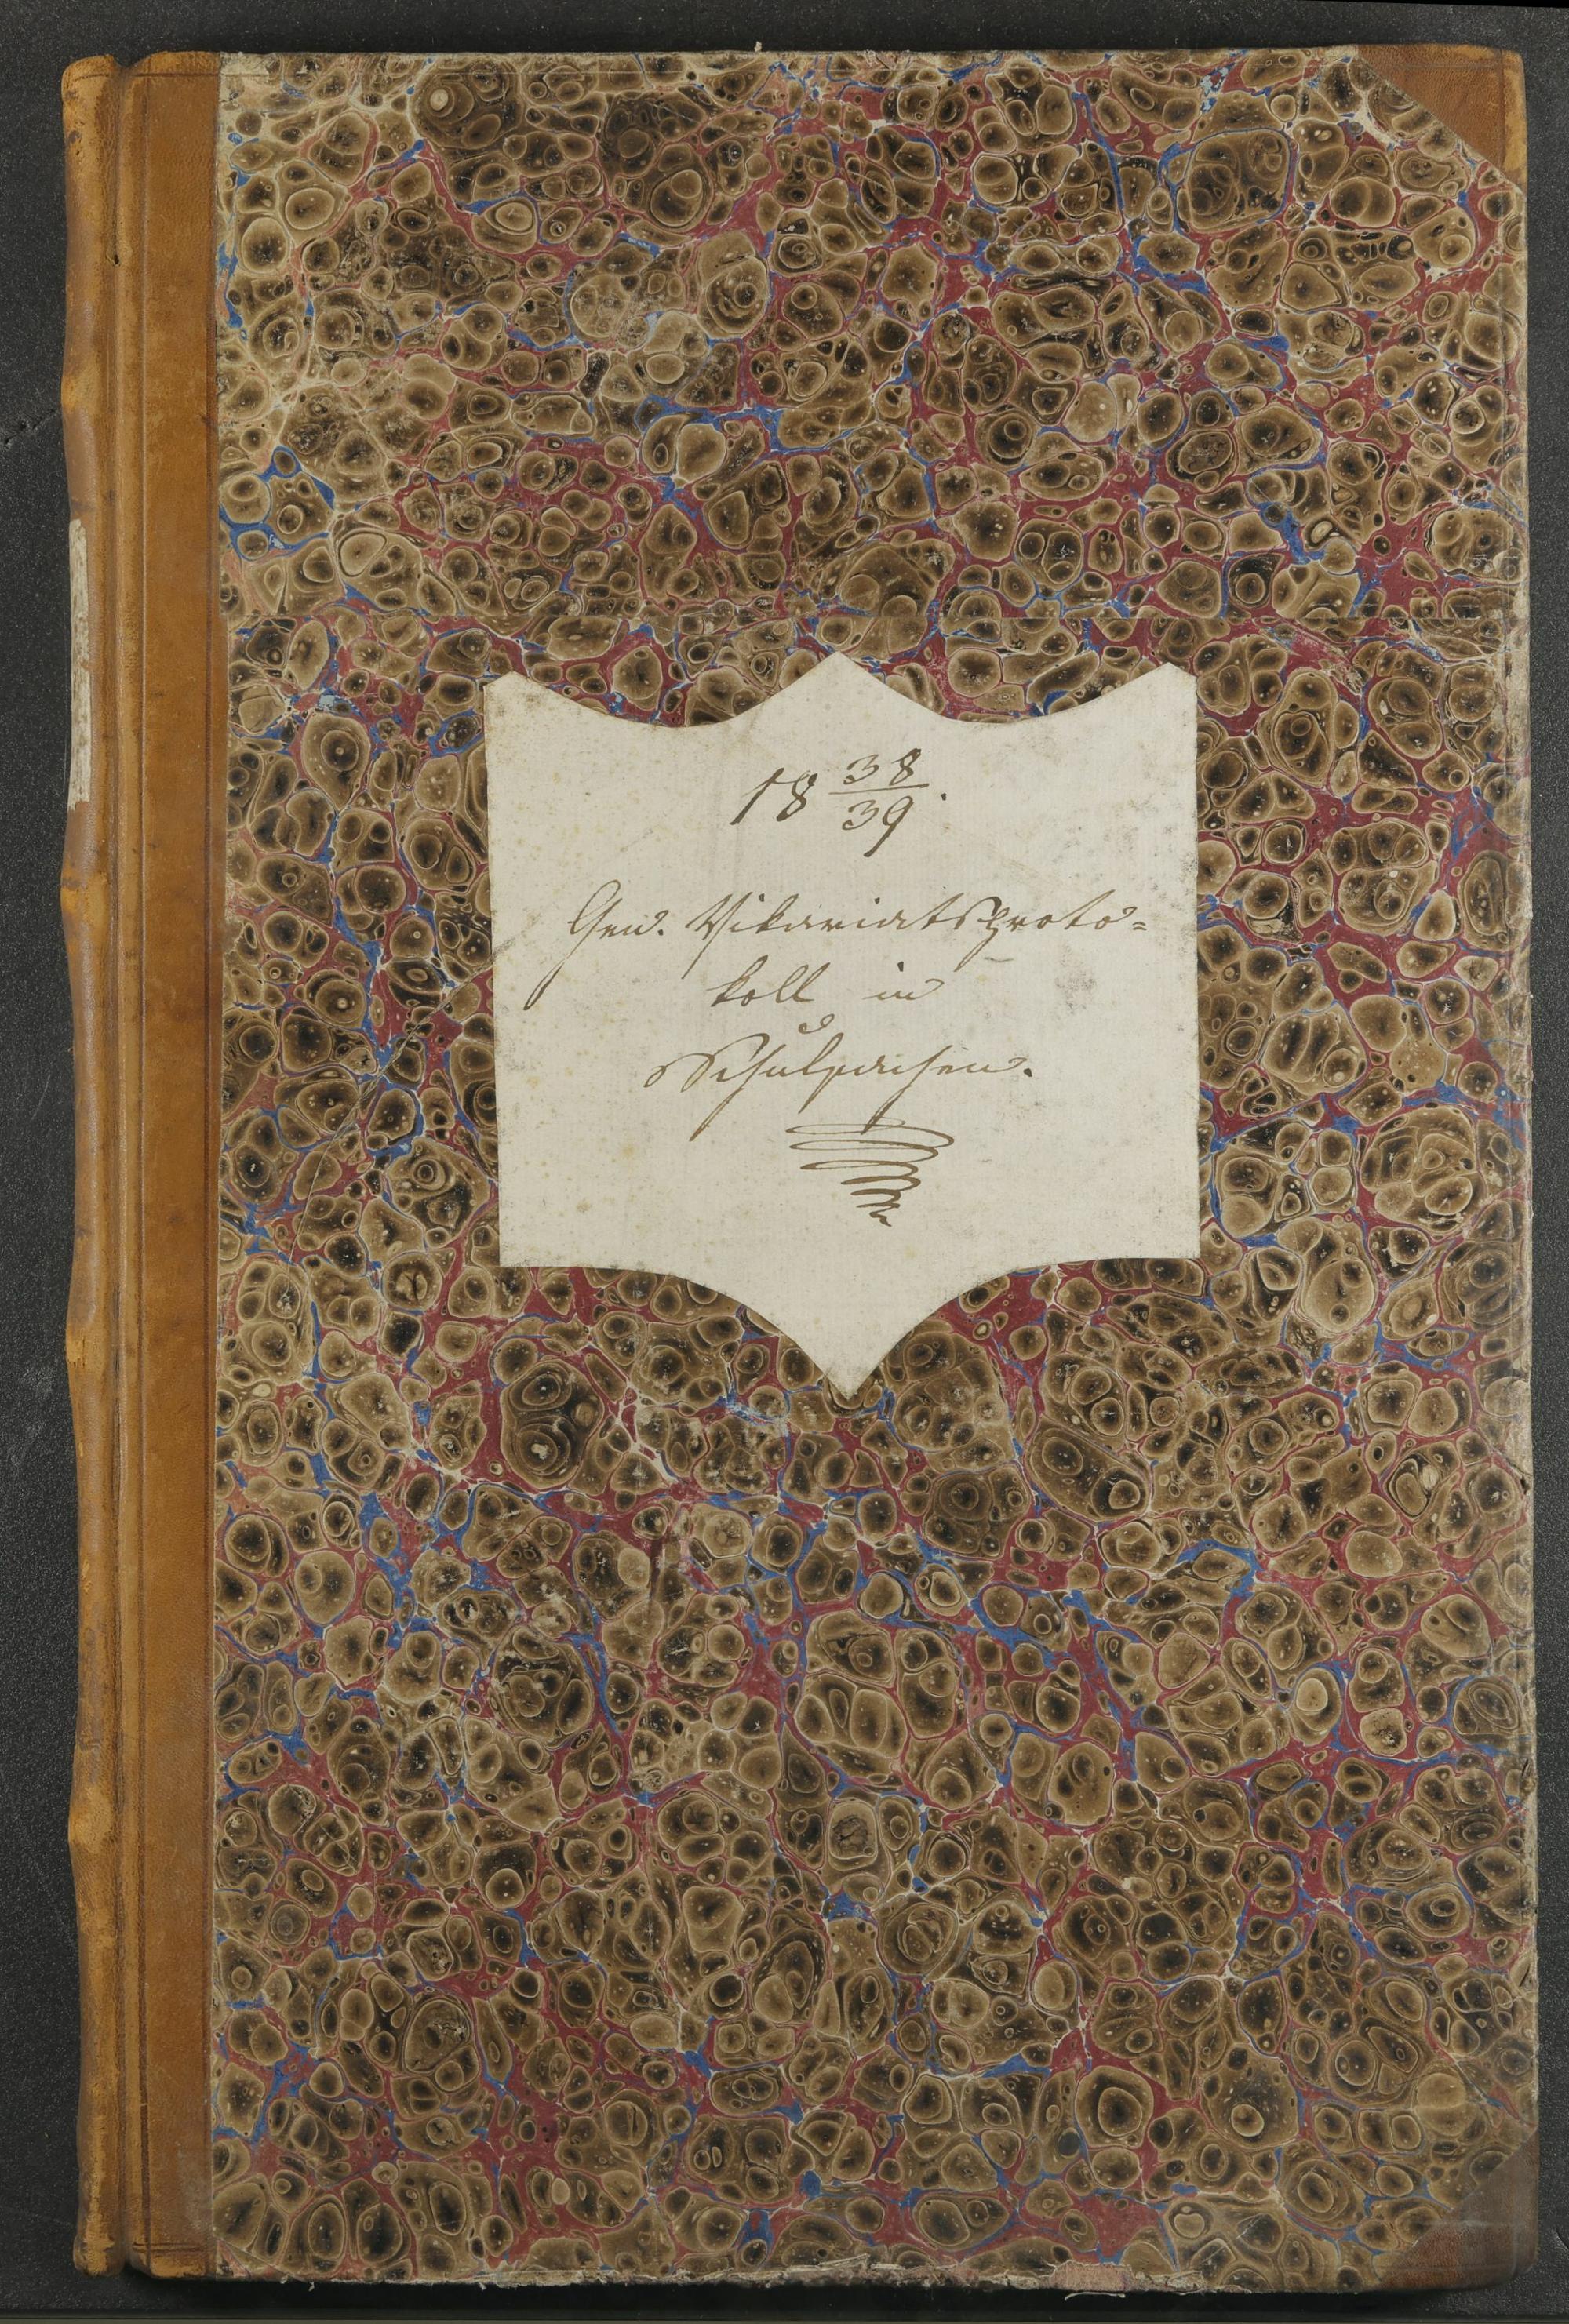 18 38/39.
Gen. Vikariatsproto=
koll in
Schulsachen.